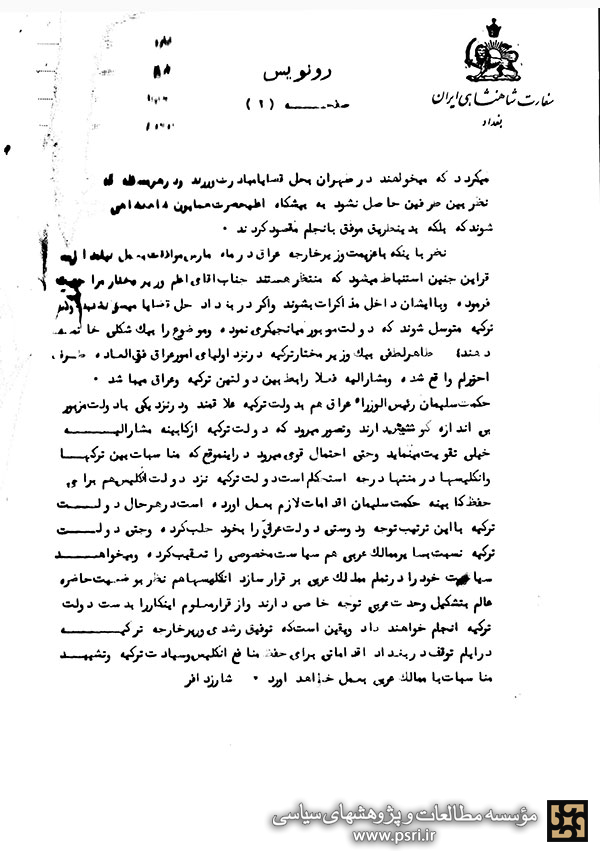 سفارت شاهنشاهی ایران
بغداد
رونویس
صفحه (۲)
میگردد که میخواهند در طهران بحل قضایا مبادرت ورزند و در هر
نظر بین طرفین حاصل نشود به پیشگاه اعلیحضرت همایون شاهنشاهی
شوند که بلکه بدینطریق موفق بانجام مقصود گردند ۰
نظر باینکه با عزیمت وزیر خارجه عراق در ماه مارس
قراین چنین استنباط میشود که منتظر هستند جناب آقای اعلم وزیر مختار مراجعت
فرموده و با ایشان داخل مذاکرات بشوند و اگر در بغداد حل قضایا میسر نشد
ترکیه متوسل شوند که دولت مزبور میانجیگری نموده و موضوع را بیک شکلی خاتمه
دهند طاهر لطفی بیک وزیر مختار ترکیه در نزد اولیای امور عراق فوق العاده طرف
احترام واقع شده و مشارالیه فعلا رابط بین دولتین ترکیه و عراق میباشد ۰
حکمت سلیمان رئیس الوزراء عراق هم بدولت ترکیه علاقمند و در نزدیکی با دولت مزبور
بی اندازه کوشش دارند و تصور میرود که دولت ترکیه از کابینه مشارالیه
خیلی تقویت مینماید و حتی احتمال قوی میرود در اینموقع که مناسبات بین ترکها
و انگلیسها در منتها درجه استحکام است دولت ترکیه نزد دولت انگلیس هم برای
حفظ کابینه حکمت سلیمان اقدامات لازم بعمل آورده است در هر حال دولت
ترکیه با این ترتیب توجه و دوستی دولت عراق را بخود جلب کرده و حتی دولت
ترکیه نسبت بسایر ممالک عربی هم سیاست مخصوصی را تعقیب کرده و میخواهد
سیادت خود را در تمام ممالک عربی برقرار سازد انگلیسها هم نظر بوضعیت حاضره
عالم بتشکیل وحدت عربی توجه خاصی دارند و از قرار معلوم اینکار را بدست دولت
ترکیه انجام خواهند داد و یقین است که توفیق رشدی وزیر خارجه ترکیه
در ایام توقف در بغداد اقداماتی برای حفظ منافع انگلیس و سیادت ترکیه و تشیید
مناسبات با ممالک عربی بعمل خواهد آورد ۰ شارژدافر
مؤسسه مطالعات و پژوهشهای سیاسی
www.psri.ir